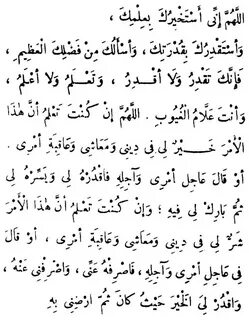 اللَّهُمَّ إِنِّي أَسْتَخِيرُكَ بِعِلْمِكَ ،
وَأَسْتَقْدِرُكَ بِقُدْرَتِكَ ، وَأَسْأَلُكَ مِنْ فَضْلِكَ الْعَظِيمِ .
فَإِنَّكَ تَقْدِرُ وَلَا أَقْدِرُ ، وَتَعْلَمُ وَلَا أَعْلَمُ ،
وَأَنْتَ عَلَّامُ الْغُيُوبِ . اللَّهُمَّ إِنْ كُنْتَ تَعْلَمُ أَنَّ هٰذَا
الْأَمْرَ خَيْرٌ لِي فِي دِينِي وَمَعَاشِي وَعَاقِبَةِ أَمْرِي .
أَوْ قَالَ عَاجِلِ أَمْرِي وَآجِلِهِ فَاقْدُرْهُ لِي وَيَسِّرْهُ لِي
ثُمَّ بَارِكْ لِي فِيهِ ؛ وَإِنْ كُنْتَ تَعْلَمُ أَنَّ هٰذَا الْأَمْرَ
شَرٌّ لِي فِي دِينِي وَمَعَاشِي وَعَاقِبَةِ أَمْرِي ، أَوْ قَالَ
فِي عَاجِلِ أَمْرِي وَآجِلِهِ، فَاصْرِفْهُ عَنِّي ، وَاصْرِفْنِي عَنْهُ ،
وَاقْدُرْ لِيَ الْخَيْرَ حَيْثُ كَانَ ثُمَّ ارْضِنِي بِهِ